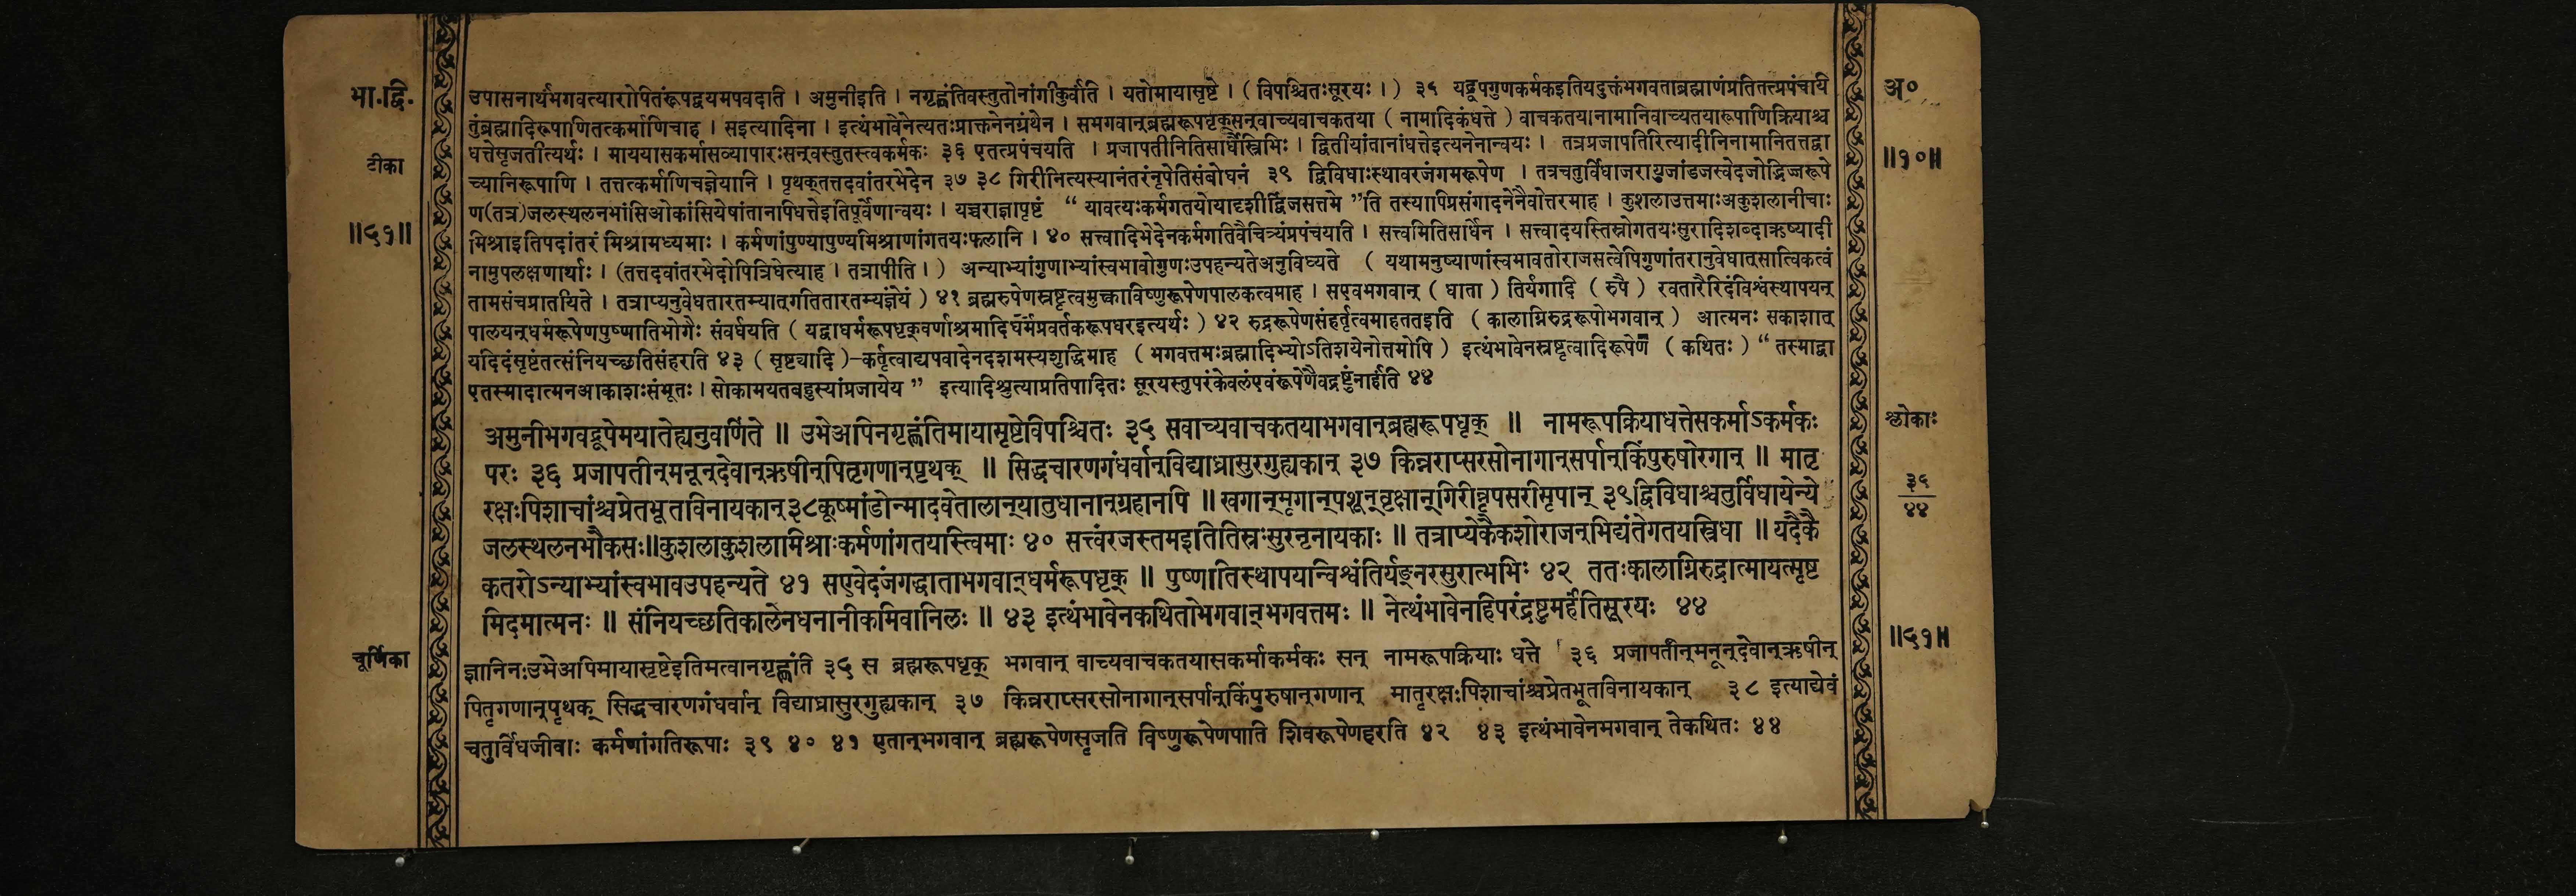 भा.द्वि.
टीका
॥५१॥
उपासनार्थंभगवत्यारोपितंरूपद्वयमपवदति । अमुनीइति । नगृह्णंतिवस्तुतोनांगीकुर्वति । यतोमायासृष्टे । ( विपश्चितःसूरयः । ) ३५ यद्रूपगुणकर्मकइतियदुक्तंभगवताब्रह्माणंप्रतितत्प्रपंचयि
तुंब्रह्मादिरूपाणितत्कर्माणिचाह । सइत्यादिना । इत्थंभावेनेत्यतःप्राक्तनेनग्रंथेन । सभगवान्ब्रह्मरूपधृक्सन्वाच्यवाचकतया ( नामादिकंधत्ते ) वाचकतयानामानिवाच्यतयारूपाणिक्रियाश्च
धत्तेसृजतीत्यर्थः । माययासकर्मासव्यापारःसन्वस्तुतस्त्वकर्मकः ३६ एतत्प्रपंचयति । प्रजापतीनितिसार्धैस्त्रिभिः । द्वितीयांतानांधत्तेइत्यनेनान्वयः । तत्रप्रजापतिरित्यादीनिनामानितत्तद्वा
च्यानिरूपाणि । तत्तत्कर्माणिचज्ञेयानि । पृथक्तत्तदवांतरभेदेन ३७ ३८ गिरीनित्यस्यानंतरंनृपेतिसंबोधनं ३९ द्विविधाःस्थावरजंगमरूपेण । तत्रचतुर्विधाजरायुजांडजस्वेदजोद्भिज्जरूपे
ण(तत्र)जलस्थलनभांसिओकांसियेषांतानापिधत्तेइतिपूर्वेणान्वयः । यच्चराज्ञापृष्टं “ यावत्यःकर्मगतयोयादृशीर्द्विजसत्तमे ”ति तस्यापिप्रसंगादनेनैवोत्तरमाह । कुशलाउत्तमाःअकुशलानीचाः
मिश्राइतिपदांतरं मिश्रामध्यमाः । कर्मणांपुण्यापुण्यमिश्राणांगतयःफलानि । ४० सत्त्वादिभेदेनकर्मगतिवैचित्र्यंप्रपंचयति । सत्त्वमितिसार्धेन । सत्त्वादयस्तिस्रोगतयःसुरादिशब्दाऋष्यादी
नामुपलक्षणार्थाः । (तत्तदवांतरभेदोपित्रिधेत्याह । तत्रापीति । ) अन्याभ्यांगुणाभ्यांस्वभावोगुणःउपहन्यतेअनुविध्यते ( यथामनुष्याणांस्वभावतोराजसत्वेपिगुणांतरानुवेधात्सात्विकत्वं
तामसंचप्रातयिते । तत्राप्यनुवेधतारतम्यात्गतितारतम्यंज्ञेयं ) ४१ ब्रह्मरुपेणस्रष्टृत्वमुक्त्वाविष्णुरूपेणपालकत्वमाह । सएवभगवान् ( धाता ) तिर्यगादि ( रुपै ) रवतारैरिदंविश्वंस्थापयन्
पालयन्धर्मरूपेणपुष्णातिभोगैः संवर्धयति ( यद्वाधर्मरूपधृक्वर्णाश्रमादिधर्मप्रवर्तकरूपधरइत्यर्थः ) ४२ रुद्ररूपेणसंहर्तृत्वमाहततइति ( कालाग्निरुद्ररूपोभगवान् ) आत्मनः सकाशात्
यदिदंसृष्टंतत्संनियच्छतिसंहरति ४३ ( सृष्ट्यादि )-कर्तृत्वाद्यपवादेनदशमस्यशुद्धिमाह ( भगवत्तमःब्रह्मादिभ्योऽतिशयेनोत्तमोपि ) इत्थंभावेनस्रष्टृत्वादिरूपेण ( कथितः ) “ तस्माद्वा
एतस्मादात्मनआकाशःसंभूतः । सोकामयतबहुस्यांप्रजायेय ” इत्यादिश्रुत्याप्रतिपादितः सूरयस्तुपरंकेवलंएवंरूपेणैवद्रष्टुंनार्हंति ४४
अमुनीभगवद्रूपेमयातेह्यनुवर्णिते ॥ उभेअपिनगृह्णंतिमायासृष्टेविपश्चितः ३५ सवाच्यवाचकतयाभगवान्ब्रह्मरूपधृक् ॥ नामरूपक्रियाधत्तेसकर्माऽकर्मकः
परः ३६ प्रजापतीन्मनून्देवान्ऋषीन्पितृगणान्पृथक् ॥ सिद्धचारणगंधर्वान्विद्याध्रासुरगुह्यकान् ३७ किन्नराप्सरसोनागान्सर्पान्किंपुरुषोरगान् ॥ मातृ
रक्षःपिशाचांश्चप्रेतभूतविनायकान्३८कूष्मांडोन्मादवेतालान्यातुधानान्ग्रहानपि ॥ खगान्मृगान्पशून्वृक्षान्गिरीन्नृपसरीसृपान् ३९द्विविधाश्चतुर्विधायेन्ये
जलस्थलनभौकसः॥कुशलाकुशलामिश्राःकर्मणांगतयास्त्विमाः ४० सत्त्वंरजस्तमइतितिस्रःसुरनृनायकाः ॥ तत्राप्येकैकशोराजन्भिद्यंतेगतयस्त्रिधा ॥ यदैकै
कतरोऽन्याभ्यांस्वभावउपहन्यते ४१ सएवेदंजगद्धाताभगवान्धर्मरूपधृक् ॥ पुष्णातिस्थापयन्विश्वंतिर्यङ्नरसुरात्मभिः ४२ ततःकालाग्निरुद्रात्मायत्सृष्ट
मिदमात्मनः ॥ संनियच्छतिकालेनघनानीकमिवानिलः ॥ ४३ इत्थंभावेनकथितोभगवान्भगवत्तमः ॥ नेत्थंभावेनहिपरंद्रष्टुमर्हंतिसूरयः ४४
चूर्णिका
ज्ञानिनःउभेअपिमायासृष्टेइतिमत्वानगृह्णंति ३५ स ब्रह्मरूपधृक् भगवान् वाच्यवाचकतयासकर्माकर्मकः सन् नामरूपक्रियाः धत्ते ३६ प्रजापतीन्मनून्देवान्ऋषीन्
पितृगणान्पृथक् सिद्धचारणगंधर्वान् विद्याध्रासुरगुह्यकान् ३७ किन्नराप्सरसोनागान्सर्पान्किंपुरुषान्गणान् मातृरक्षःपिशाचांश्चप्रेतभूतविनायकान् ३८ इत्याद्येवं
चतुर्विधजीवाः कर्मणांगतिरूपाः ३९ ४० ४१ एतान्भगवान् ब्रह्मरूपेणसृजति विष्णुरूपेणपाति शिवरूपेणहरति ४२ ४३ इत्थंभावेनभगवान् तेकथितः ४४
अ०
॥१०॥
श्लोकाः
३५
४४
॥५१॥